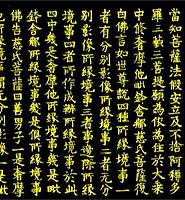 當知菩薩法假安立及不捨阿耨多
羅三藐三菩提願為依為住於大乘
中修奢摩他毗鉢舍那慈氏菩薩復
白佛言如世尊說四種所緣境事一
者有分別影像所緣境事二者無分
別影像所緣境事三者事邊際所緣
境事四者所作成辦所緣境事於此
四中幾是奢摩他所緣境事幾是毗
鉢舍那所緣境事幾是俱所緣境事
佛告慈氏菩薩曰善男子一是奢摩